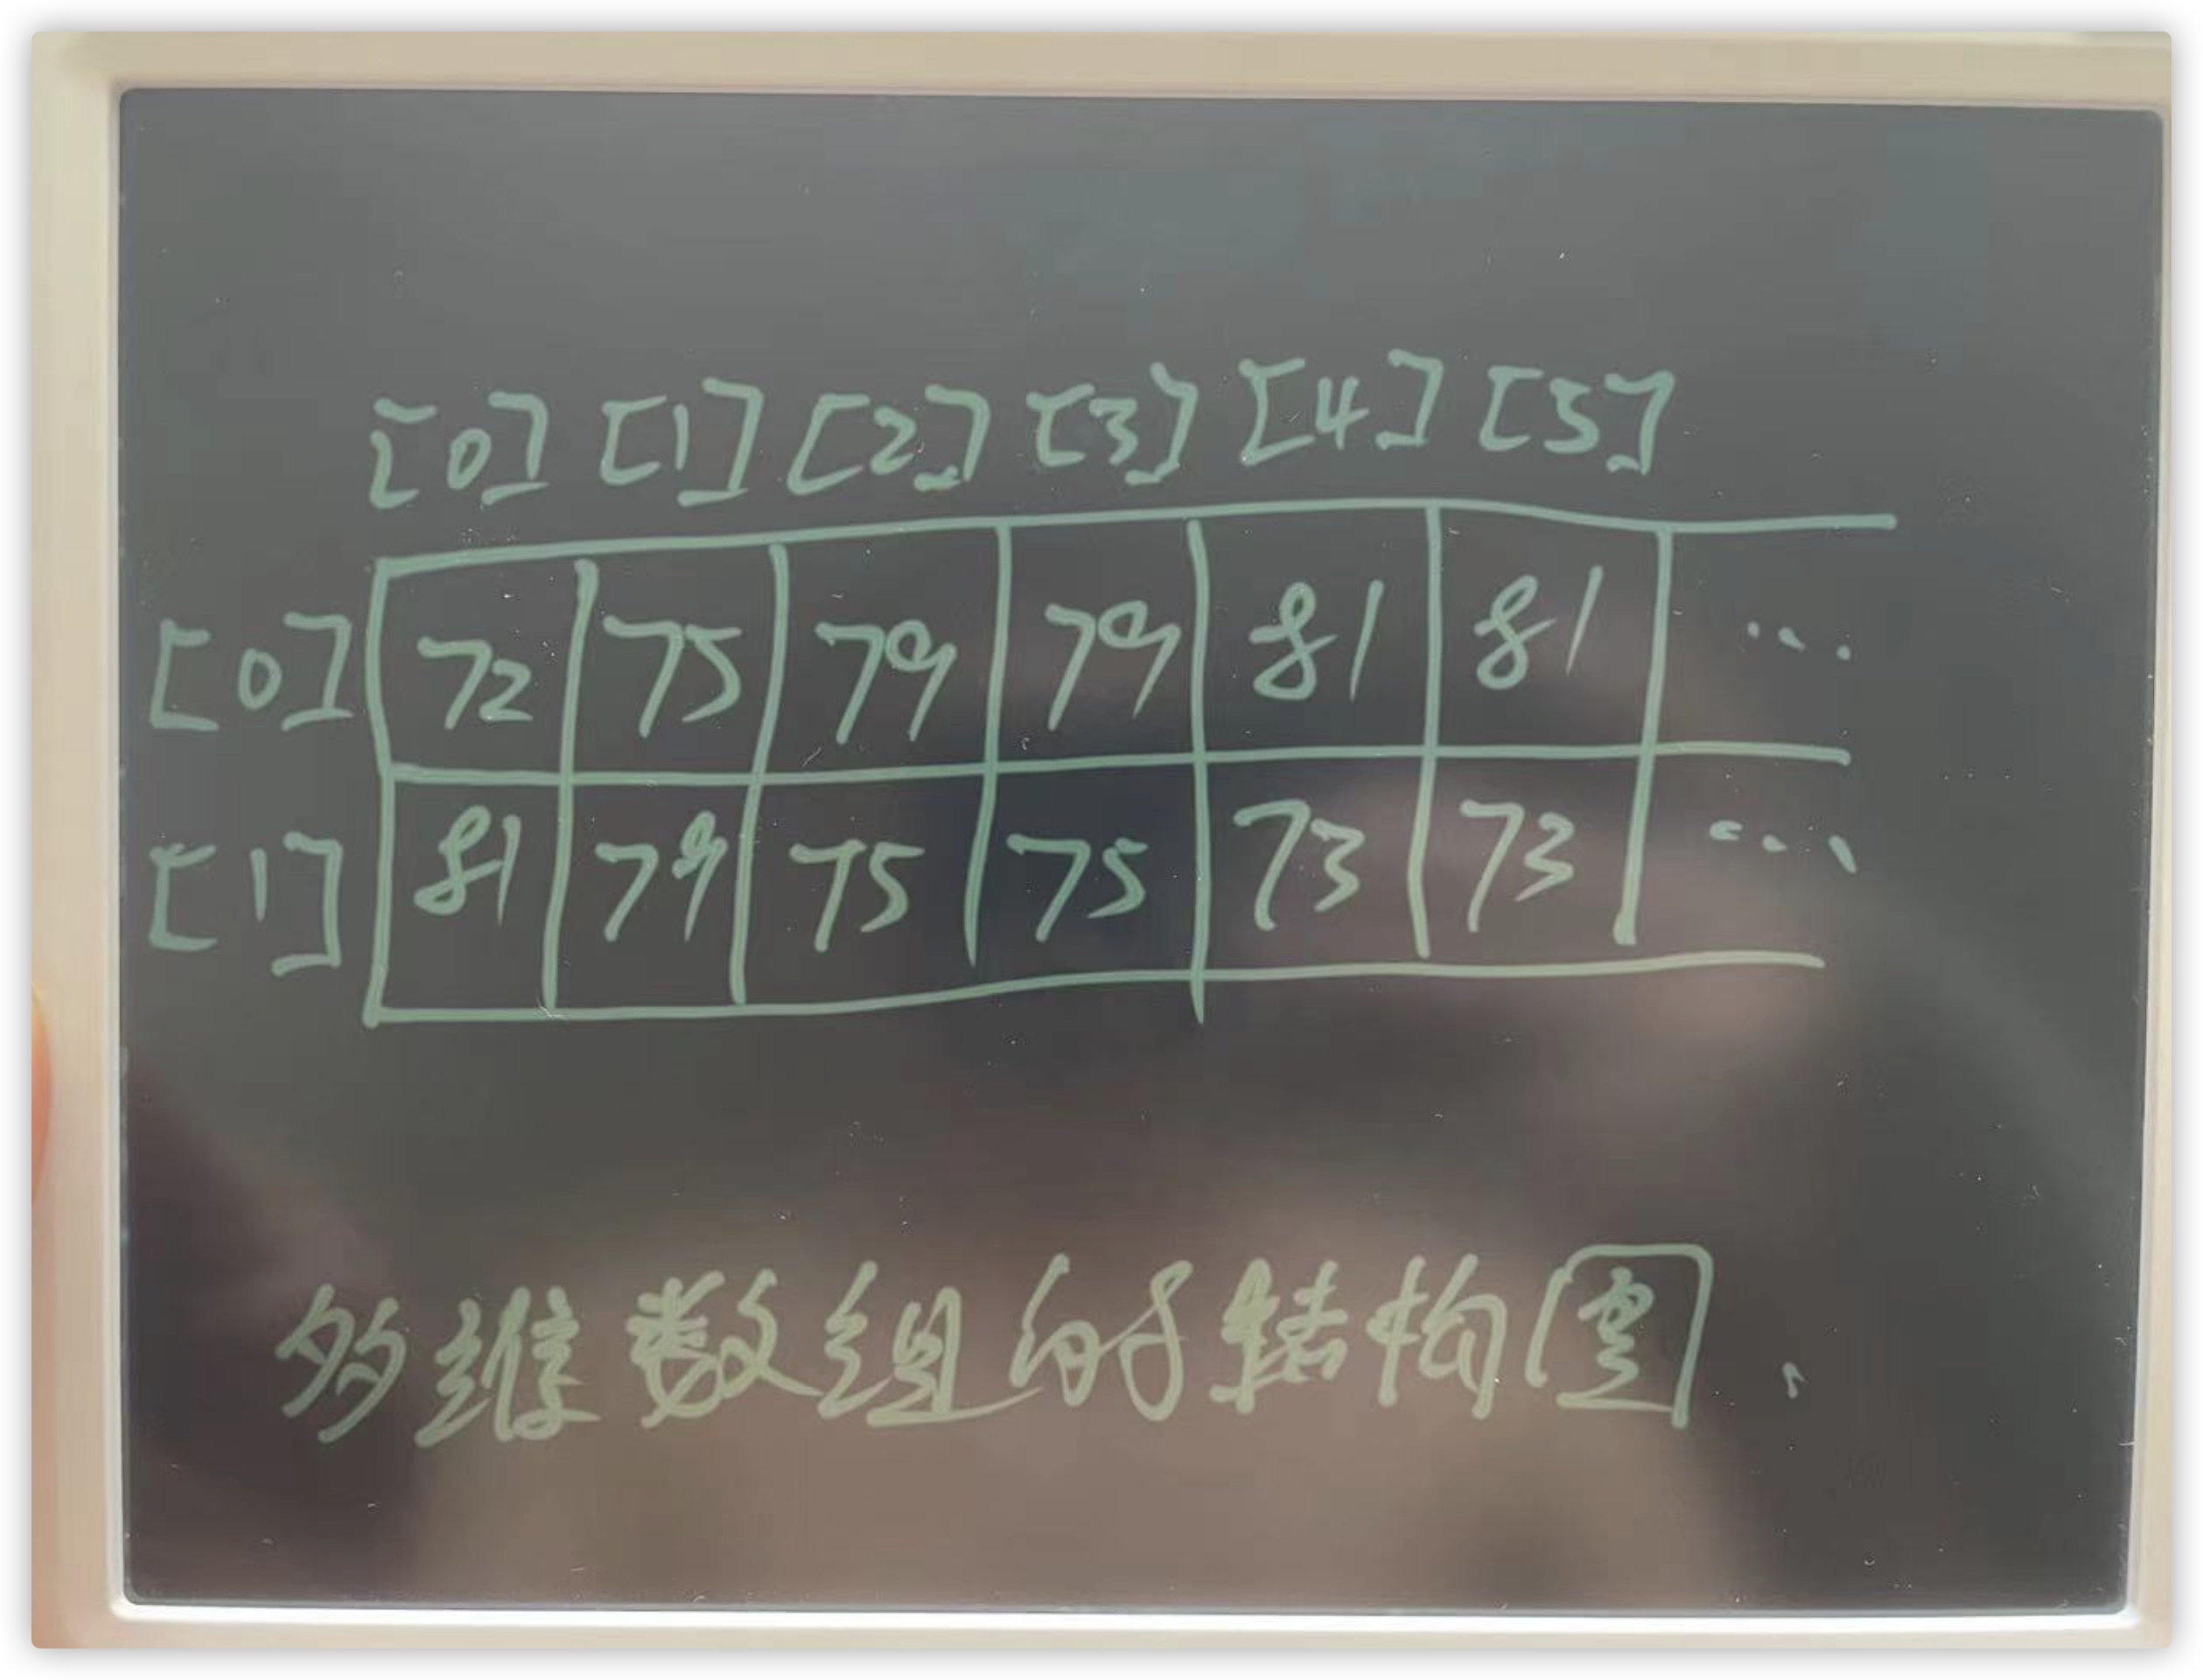 [0] [1] [2] [3] [4] [5]
[0] 72 75 79 79 81 81 ...
[1] 81 79 75 75 73 73 ...
多维数组的结构图.